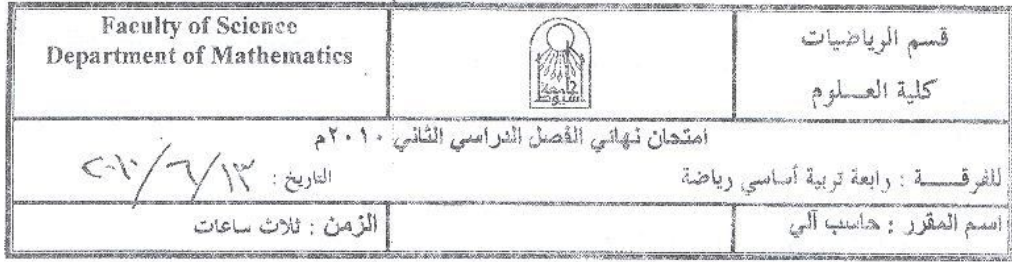 Faculty of Science
Department of Mathematics
جامعة
أسيوط
قسم الرياضيات
كلية العـــلوم
امتحان نهائي الفصل الدراسي الثاني ٢٠١٠م
للفرقـــــة : رابعة تربية أساسي رياضة
التاريخ : ١٣/٦/٢٠١٠
اسم المقرر : حاسب آلي
الزمن : ثلاث ساعات